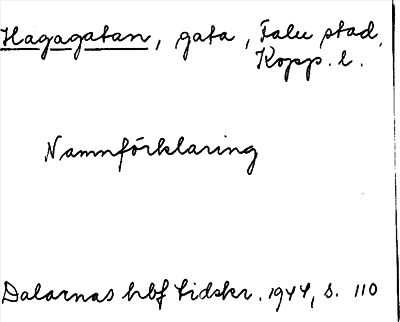 Hagagatan, gata, Falu stad,
Kopp. l.
Namnförklaring
Dalarnas hbf tidskr. 1944, s. 110